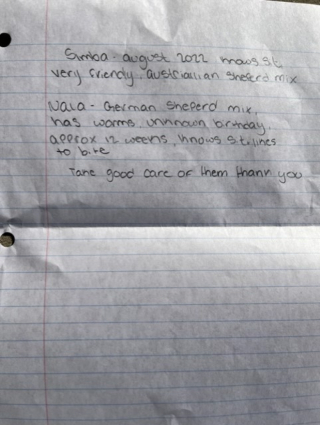 Simba - august 2022 knows sit
very friendly, australian sheperd mix
Nala - German sheperd mix,
has worms, unknown birthday,
approx 12 weeks, knows sit, likes
to bite
Take good care of them thank you